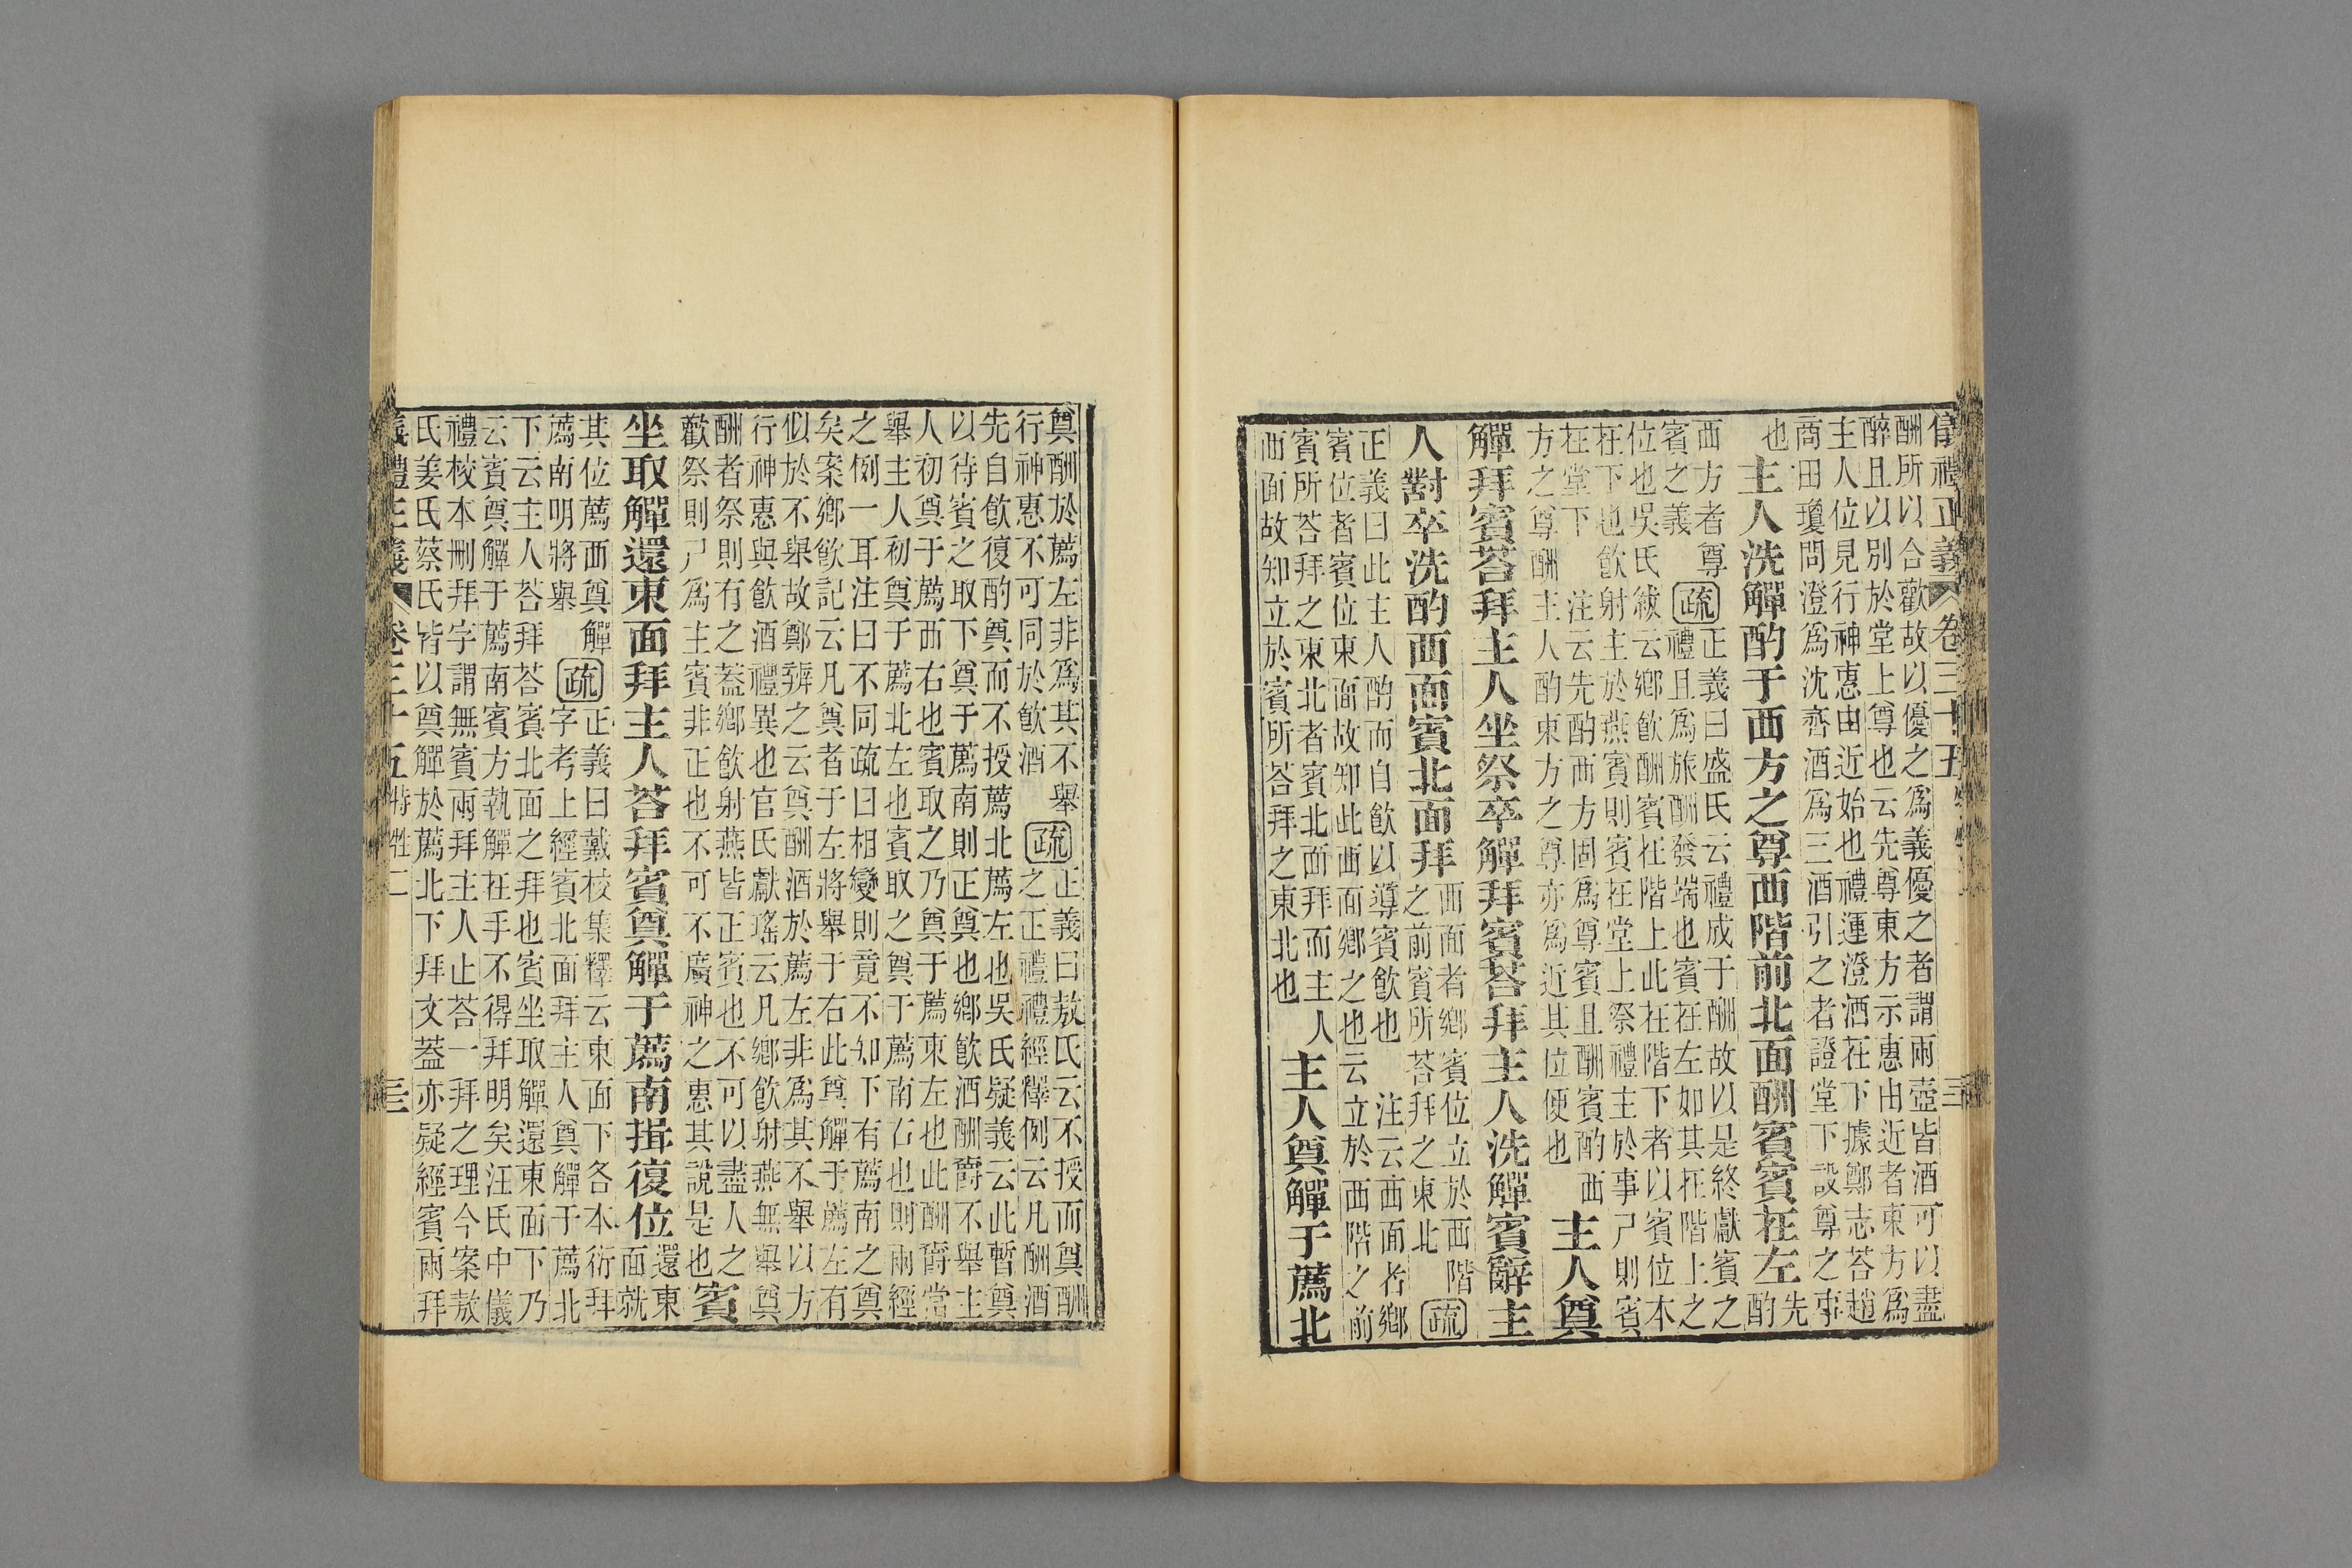 儀禮正義 卷三十五
酬所以合歡故以優之爲義優之者謂兩壺皆酒可以盡
醉且以別於堂上尊也云先尊東方示惠由近者東方爲
主人位見行神惠由近始也禮運澄酒在下據鄭志荅趙
商田瓊問澄爲沈齊酒爲三酒引之者證堂下設尊之事
也
主人洗觶酌于西方之尊西階前北面酬賓賓在左
先酌
西方者尊
賓之義
疏
正義曰盛氏云禮成于酬故以是終獻賓之
禮且爲旅酬發端也賓在左如其在階上之
位也吳氏紱云鄉飲酬賓在階上此在階下者以賓位本
在下也飲射主於燕賓則賓在堂上祭禮主於事尸則賓
在堂下 注云先酌西方固爲尊賓且酬賓酌西
方之尊酬主人酌東方之尊亦爲近其位便也
主人奠
觶拜賓荅拜主人坐祭卒觶拜賓荅拜主人洗觶賓辭主
人對卒洗酌西面賓北面拜
西面者鄉賓位立於西階
之前賓所荅拜之東北
疏
正義曰此主人酌而自飲以導賓飲也 注云西面者鄉
賓位者賓位東面故知此西面鄉之也云立於西階之前
賓所荅拜之東北者賓北面拜而主人
西面故知立於賓所荅拜之東北也
主人奠觶于薦北
奠酬於薦左非爲其不舉
行神惠不可同於飲酒
疏
正義曰敖氏云不授而奠酬
之正禮禮經釋例云凡酬酒
先自飲復酌奠而不授薦北薦左也吳氏疑義云此暫奠
以待賓之取下奠于薦南則正奠也鄉飲酒酬爵不舉主
人初奠于薦西右也賓取之乃奠于薦東左也此酬爵當
舉主人初奠于薦北左也賓取之奠于薦南右也則兩經
之例一耳注曰不同疏曰相變則竟不知下有薦南之奠
矣案鄉飲記云凡奠者于左將舉于右此奠觶于薦左有
似於不舉故鄭辨之云奠酬酒於薦左非爲其不舉以方
行神惠與飲酒禮異也官氏獻瑤云凡鄉飲射燕無舉奠
酬者祭則有之蓋鄉飲射燕皆正賓也不可以盡人之
歡祭則尸爲主賓非正也不可不廣神之惠其說是也
賓
坐取觶還東面拜主人荅拜賓奠觶于薦南揖復位
還東
面就
其位薦西奠觶
薦南明將舉
疏
正義曰戴校集釋云東面下各本衍拜
字考上經賓北面拜主人奠觶于薦北
下云主人荅拜荅賓北面之拜也賓坐取觶還東面下乃
云賓奠觶于薦南賓方執觶在手不得拜明矣汪氏中儀
禮校本刪拜字謂無賓兩拜主人止荅一拜之理今案敖
氏姜氏蔡氏皆以奠觶於薦北下拜文蓋亦疑經賓兩拜